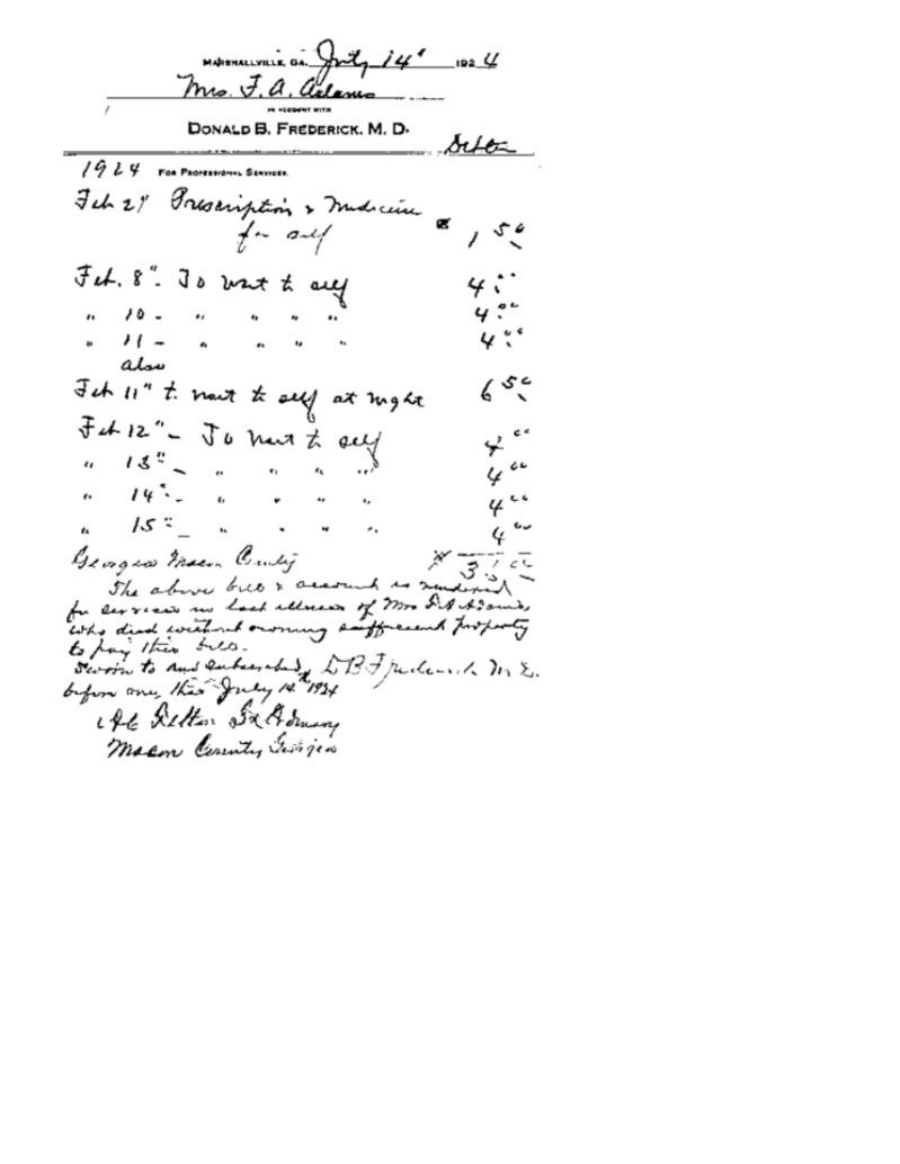 MARSHALLVILLE, GA. July 14" 1924
Mrs. F. A. Adams
IN ACCOUNT WITH
DONALD B. FREDERICK, M. D.
1924 FOR PROFESSIONAL SERVICES.
Feb 2" Prescription & Medicine
for self 1 50
Feb. 8" - To visit to self 4 00
" 10 - " " " " 4 00
" 11 - " " " " 4 00
also
Feb 11" to visit to self at night 6 50
Feb 12" - To visit to self 4 00
" 13" - " " " " 4 00
" 14" - " " " " 4 00
" 15" - " " " " 4 00
Georgia Macon County
The above bill & account is rendered
for services in last illness of Mrs F A Adams
who died without owning sufficient property
to pay this bill.
Sworn to and subscribed D B Frederick M D.
before me, this July 14th 1924
Macon County Georgia